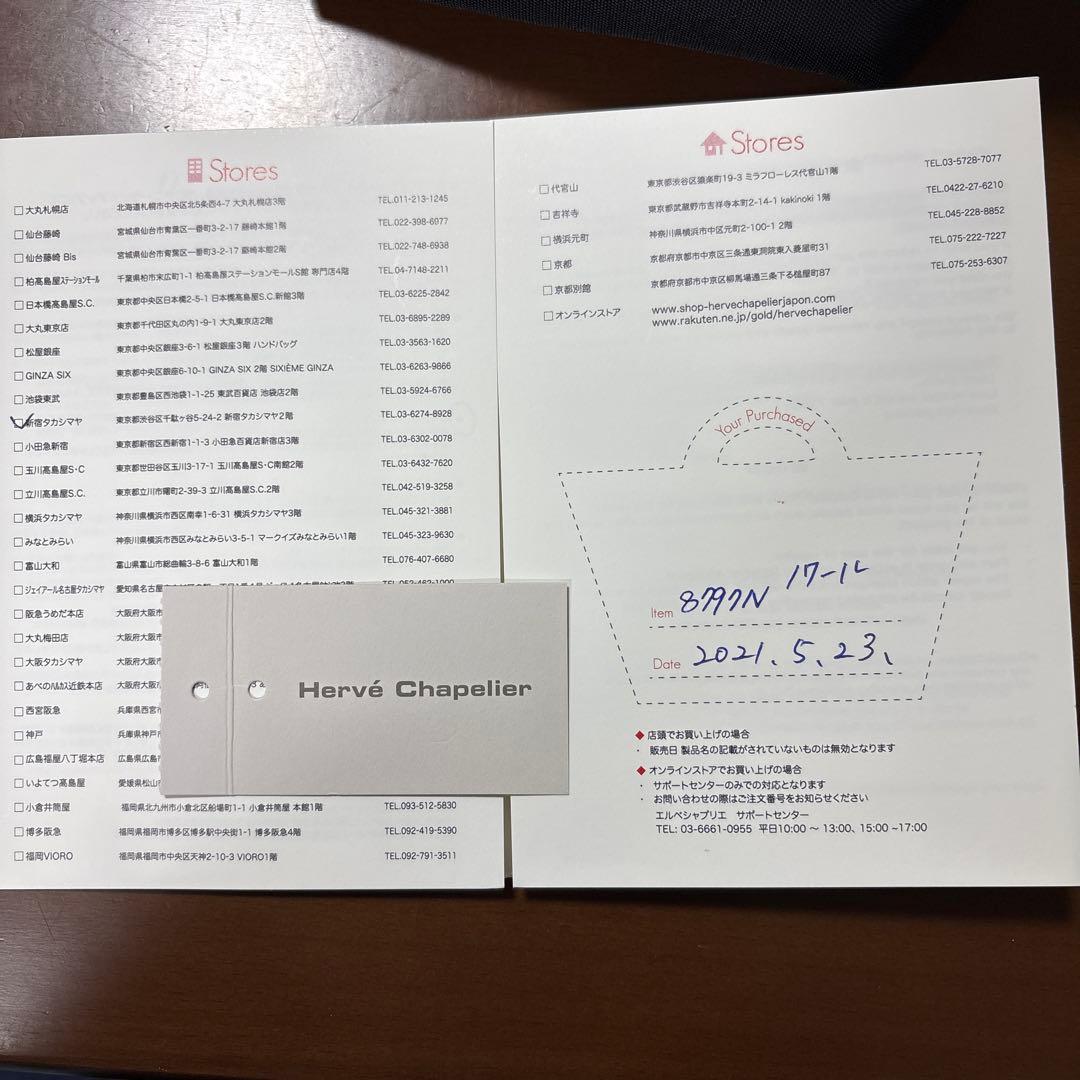 Stores
大丸札幌店 北海道札幌市中央区北5条西4-7 大丸札幌店3階 TEL.011-213-1245
仙台藤崎 宮城県仙台市青葉区一番町3-2-17 藤崎本館1階 TEL.022-398-6977
仙台藤崎 Bis 宮城県仙台市青葉区一番町3-2-17 藤崎本館2階 TEL.022-748-6938
柏高島屋ステーションモール 千葉県柏市末広町1-1 柏高島屋ステーションモールS館 専門店4階 TEL.04-7148-2211
日本橋高島屋S.C. 東京都中央区日本橋2-5-1 日本橋高島屋S.C.新館3階 TEL.03-6225-2842
大丸東京店 東京都千代田区丸の内1-9-1 大丸東京店2階 TEL.03-6895-2289
松屋銀座 東京都中央区銀座3-6-1 松屋銀座3階 ハンドバッグ TEL.03-3563-1620
GINZA SIX 東京都中央区銀座6-10-1 GINZA SIX 2階 SIXIÈME GINZA TEL.03-6263-9866
池袋東武 東京都豊島区西池袋1-1-25 東武百貨店 池袋店2階 TEL.03-5924-6766
新宿タカシマヤ 東京都渋谷区千駄ヶ谷5-24-2 新宿タカシマヤ2階 TEL.03-6274-8928
小田急新宿 東京都新宿区西新宿1-1-3 小田急百貨店新宿店3階 TEL.03-6302-0078
玉川髙島屋S・C 東京都世田谷区玉川3-17-1 玉川髙島屋S・C南館2階 TEL.03-6432-7620
立川高島屋S.C. 東京都立川市曙町2-39-3 立川高島屋S.C.2階 TEL.042-519-3258
横浜タカシマヤ 神奈川県横浜市西区南幸1-6-31 横浜タカシマヤ3階 TEL.045-321-3881
みなとみらい 神奈川県横浜市西区みなとみらい3-5-1 マークイズみなとみらい1階 TEL.045-323-9630
富山大和 富山県富山市総曲輪3-8-6 富山大和1階 TEL.076-407-6680
ジェイアール名古屋タカシマヤ 愛知県名古屋
阪急うめだ本店 大阪府大阪市
大丸梅田店 大阪府大阪
大阪タカシマヤ 大阪府大阪
あべのハルカス近鉄本店 大阪府大阪
西宮阪急 兵庫県西宮
神戸 兵庫県神戸
広島福屋八丁堀本店 広島県広島
いよてつ高島屋 愛媛県松山
小倉井筒屋 福岡県北九州市小倉北区船場町1-1 小倉井筒屋 本館1階 TEL.093-512-5830
博多阪急 福岡県福岡市博多区博多駅中央街1-1 博多阪急4階 TEL.092-419-5390
福岡VIORO 福岡県福岡市中央区天神2-10-3 VIORO1階 TEL.092-791-3511
Hervé Chapelier
Stores
代官山 東京都渋谷区猿楽町19-3 ミラフローレス代官山1階 TEL.03-5728-7077
吉祥寺 東京都武蔵野市吉祥寺本町2-14-1 kakinoki 1階 TEL.0422-27-6210
横浜元町 神奈川県横浜市中区元町2-100-1 2階 TEL.045-228-8852
京都 京都府京都市中京区三条通東洞院東入菱屋町31 TEL.075-222-7227
京都別館 京都府京都市中京区柳馬場通三条下る槌屋町87 TEL.075-253-6307
オンラインストア www.shop-hervechapelierjapon.com
www.rakuten.ne.jp/gold/hervechapelier
Your Purchased
Item 8797N ノワール
Date 2021.5.23、
◆ 店頭でお買い上げの場合
・ 販売日 製品名の記載がされていないものは無効となります
◆ オンラインストアでお買い上げの場合
・ サポートセンターのみでの対応となります
・ お問い合わせの際はご注文番号をお知らせください
エルベシャプリエ サポートセンター
TEL: 03-6661-0955 平日10:00 〜 13:00、15:00 ~17:00